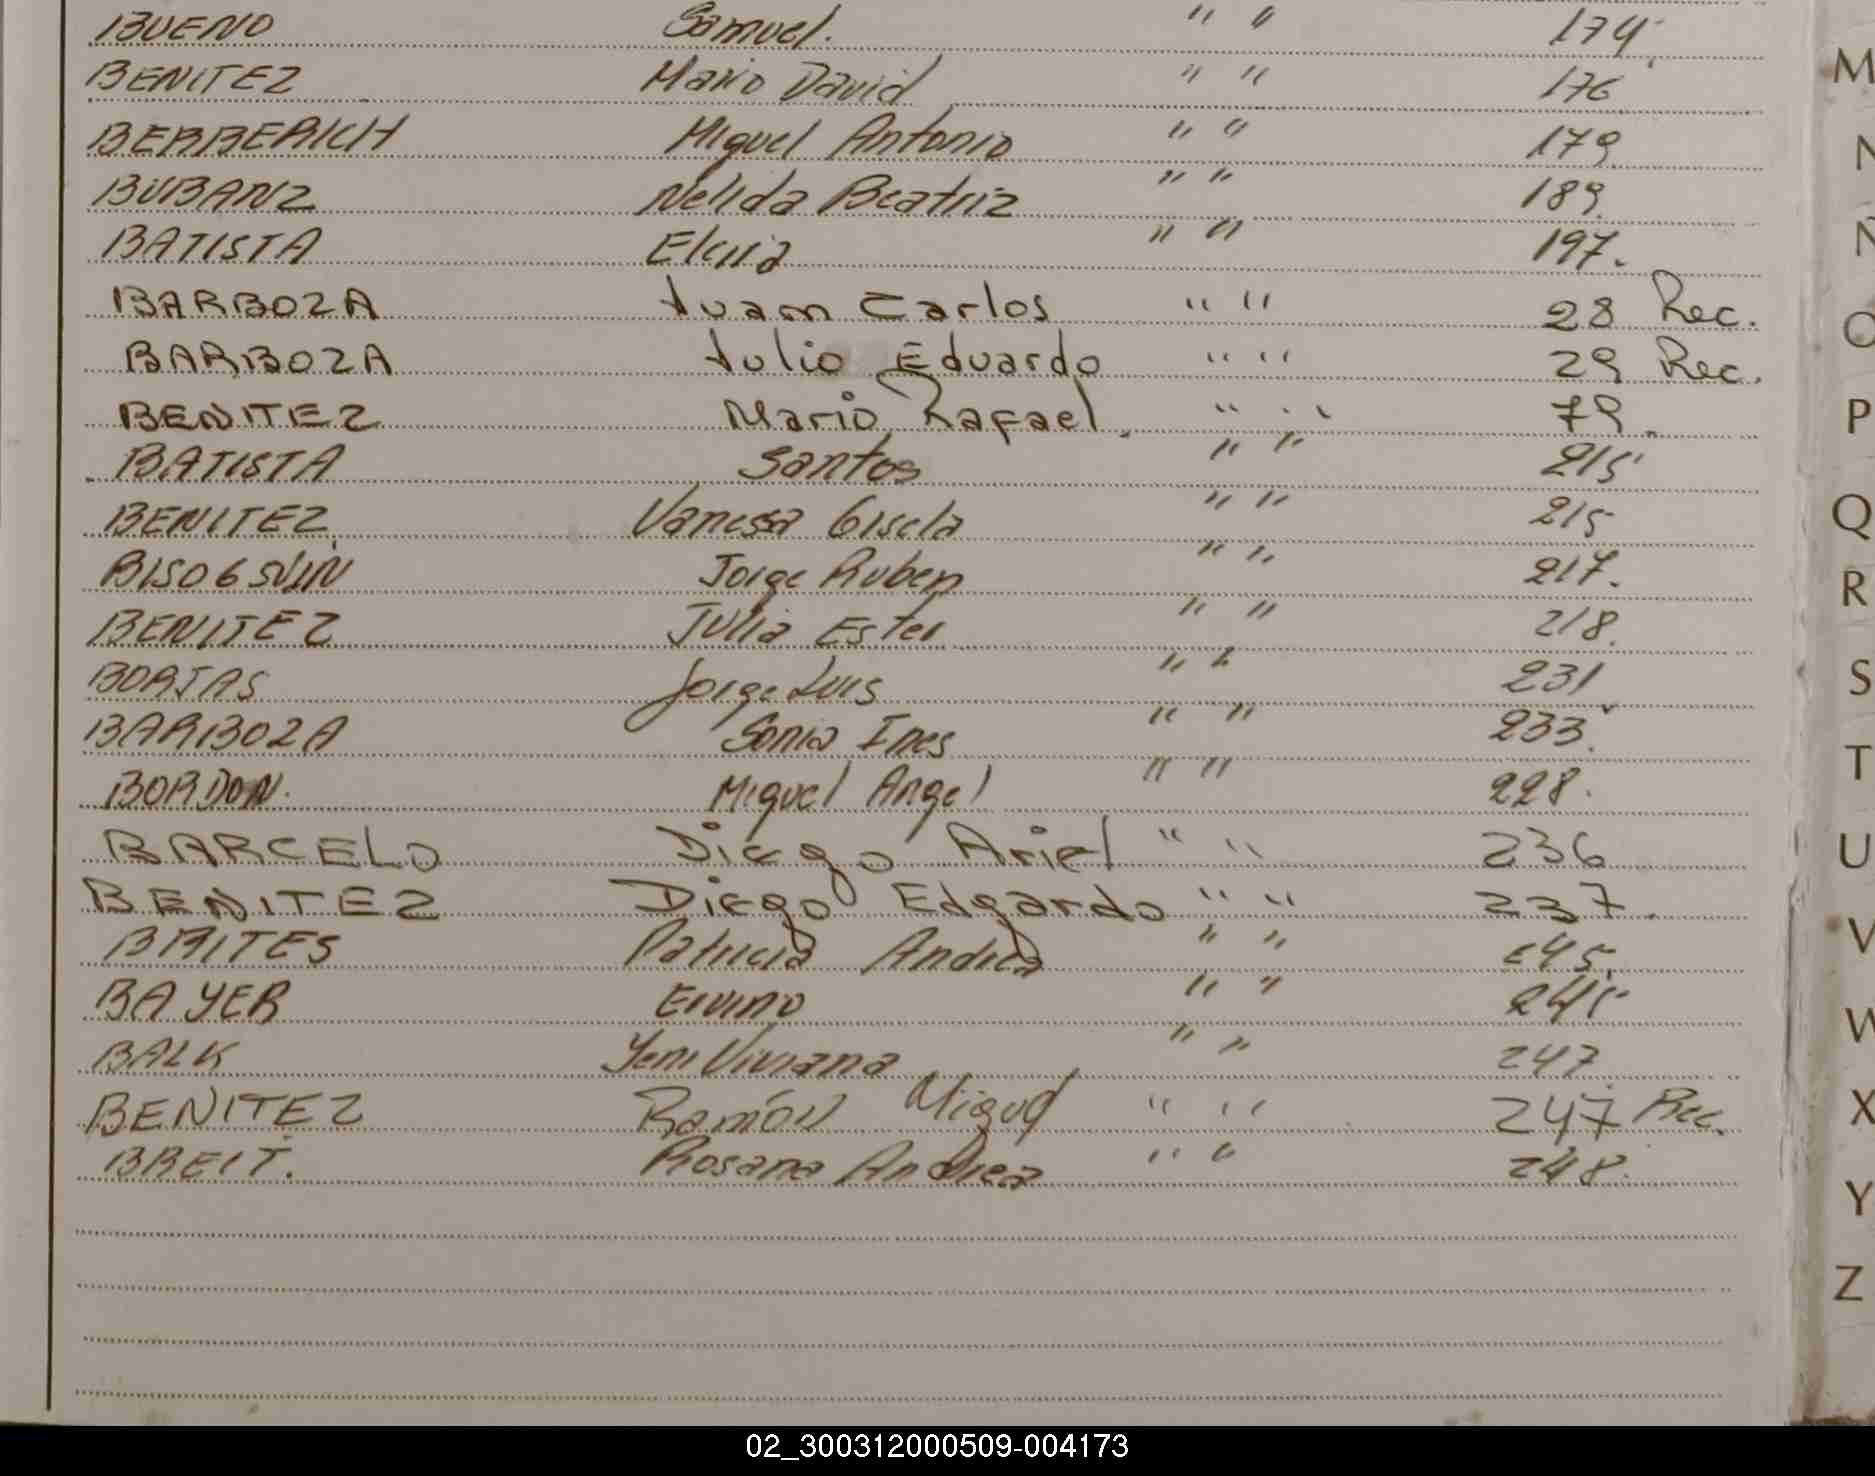 BUENO Samuel. " " 174
BENITEZ Mario David " " 176
BERBERICH Miguel Antonio " " 179
BUBANZ Nelida Beatriz " " 189
BATISTA " " 197.
BARBOZA Juan Carlos " " 28 Rec.
BARBOZA Julio Eduardo " " 29 Rec.
BENITEZ Mario Rafael. " " 79.
BATISTA Santos " " 215
BENITEZ Vanessa Gisela " " 215
Jorge Ruben " " 217.
BENITEZ Julia Ester " " 218.
BORJAS Jorge Luis " " 231
BARBOZA Sonia Ines " " 233.
BORDON. Miguel Angel " " 228.
BARCELO Diego Ariel " " 236
BENITEZ Diego Edgardo " " 237.
BRITES Patricia Andrea " " 245.
BAYER Ervino " " 245
BALK Yeni Viviana " " 247
BENITEZ Ramón Miguel " " 247 Rec.
BREIT. Rosana Andrea " " 248.
M
N
Ñ
O
P
Q
R
S
T
U
V
W
X
Y
Z
02_300312000509-004173